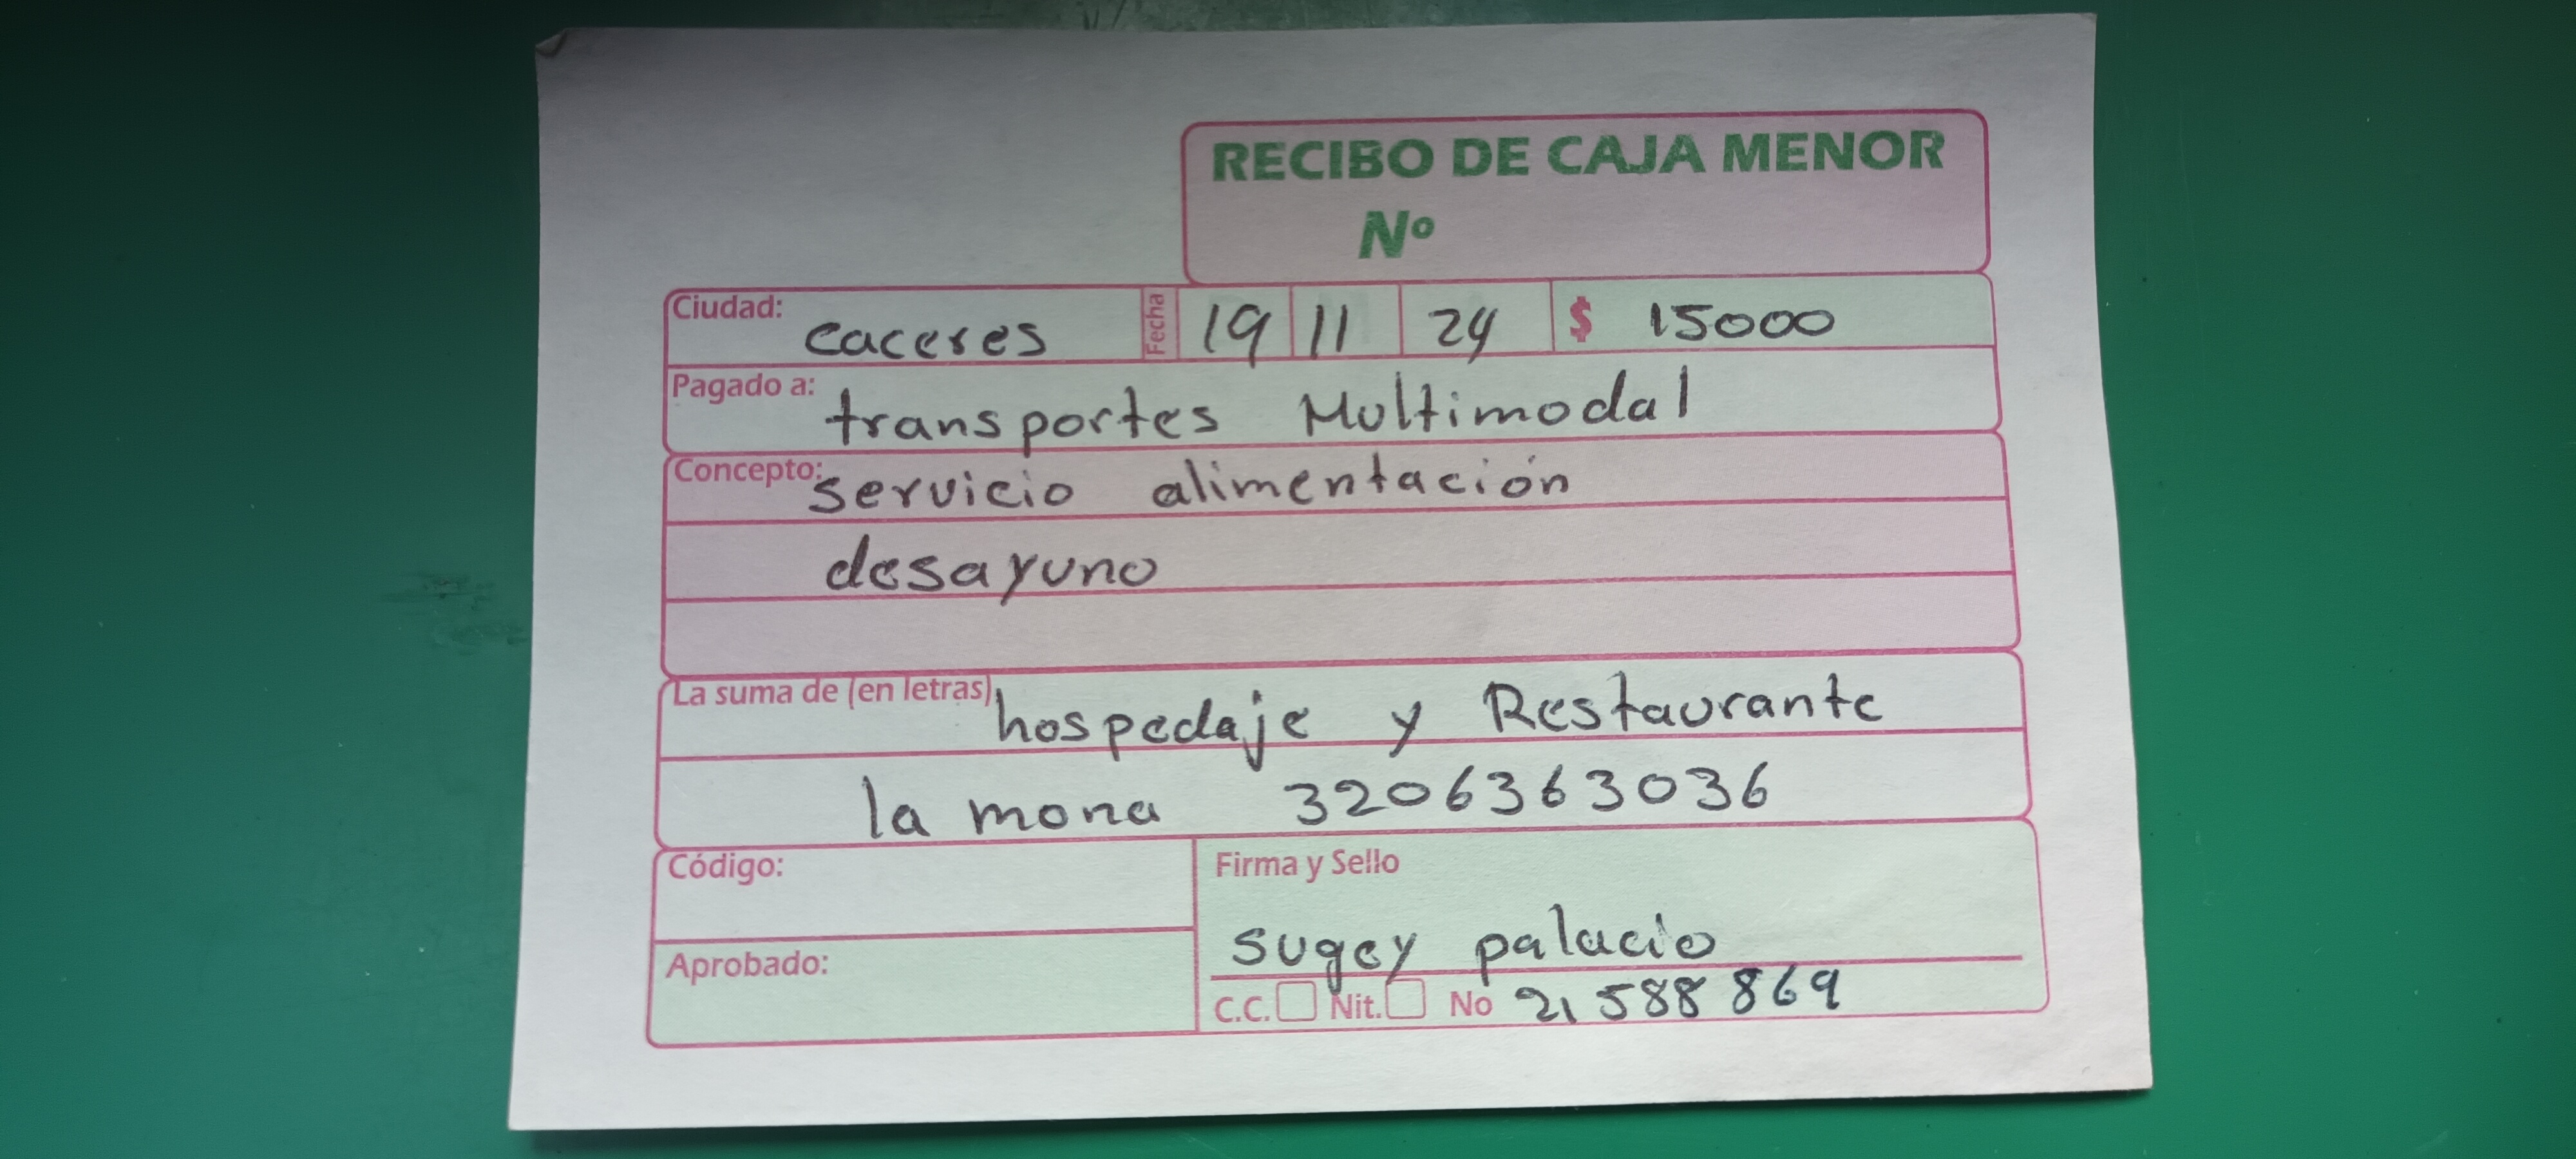 RECIBO DE CAJA MENOR
Nº
Ciudad: caceres Fecha 19 11 24 $ 15000
Pagado a: transportes Multimodal
Concepto: servicio alimentación
desayuno
La suma de (en letras) hospedaje y Restaurante
la mona 3206363036
Código:
Aprobado:
Firma y Sello
sugey palacio
C.C. Nit. No 21588869